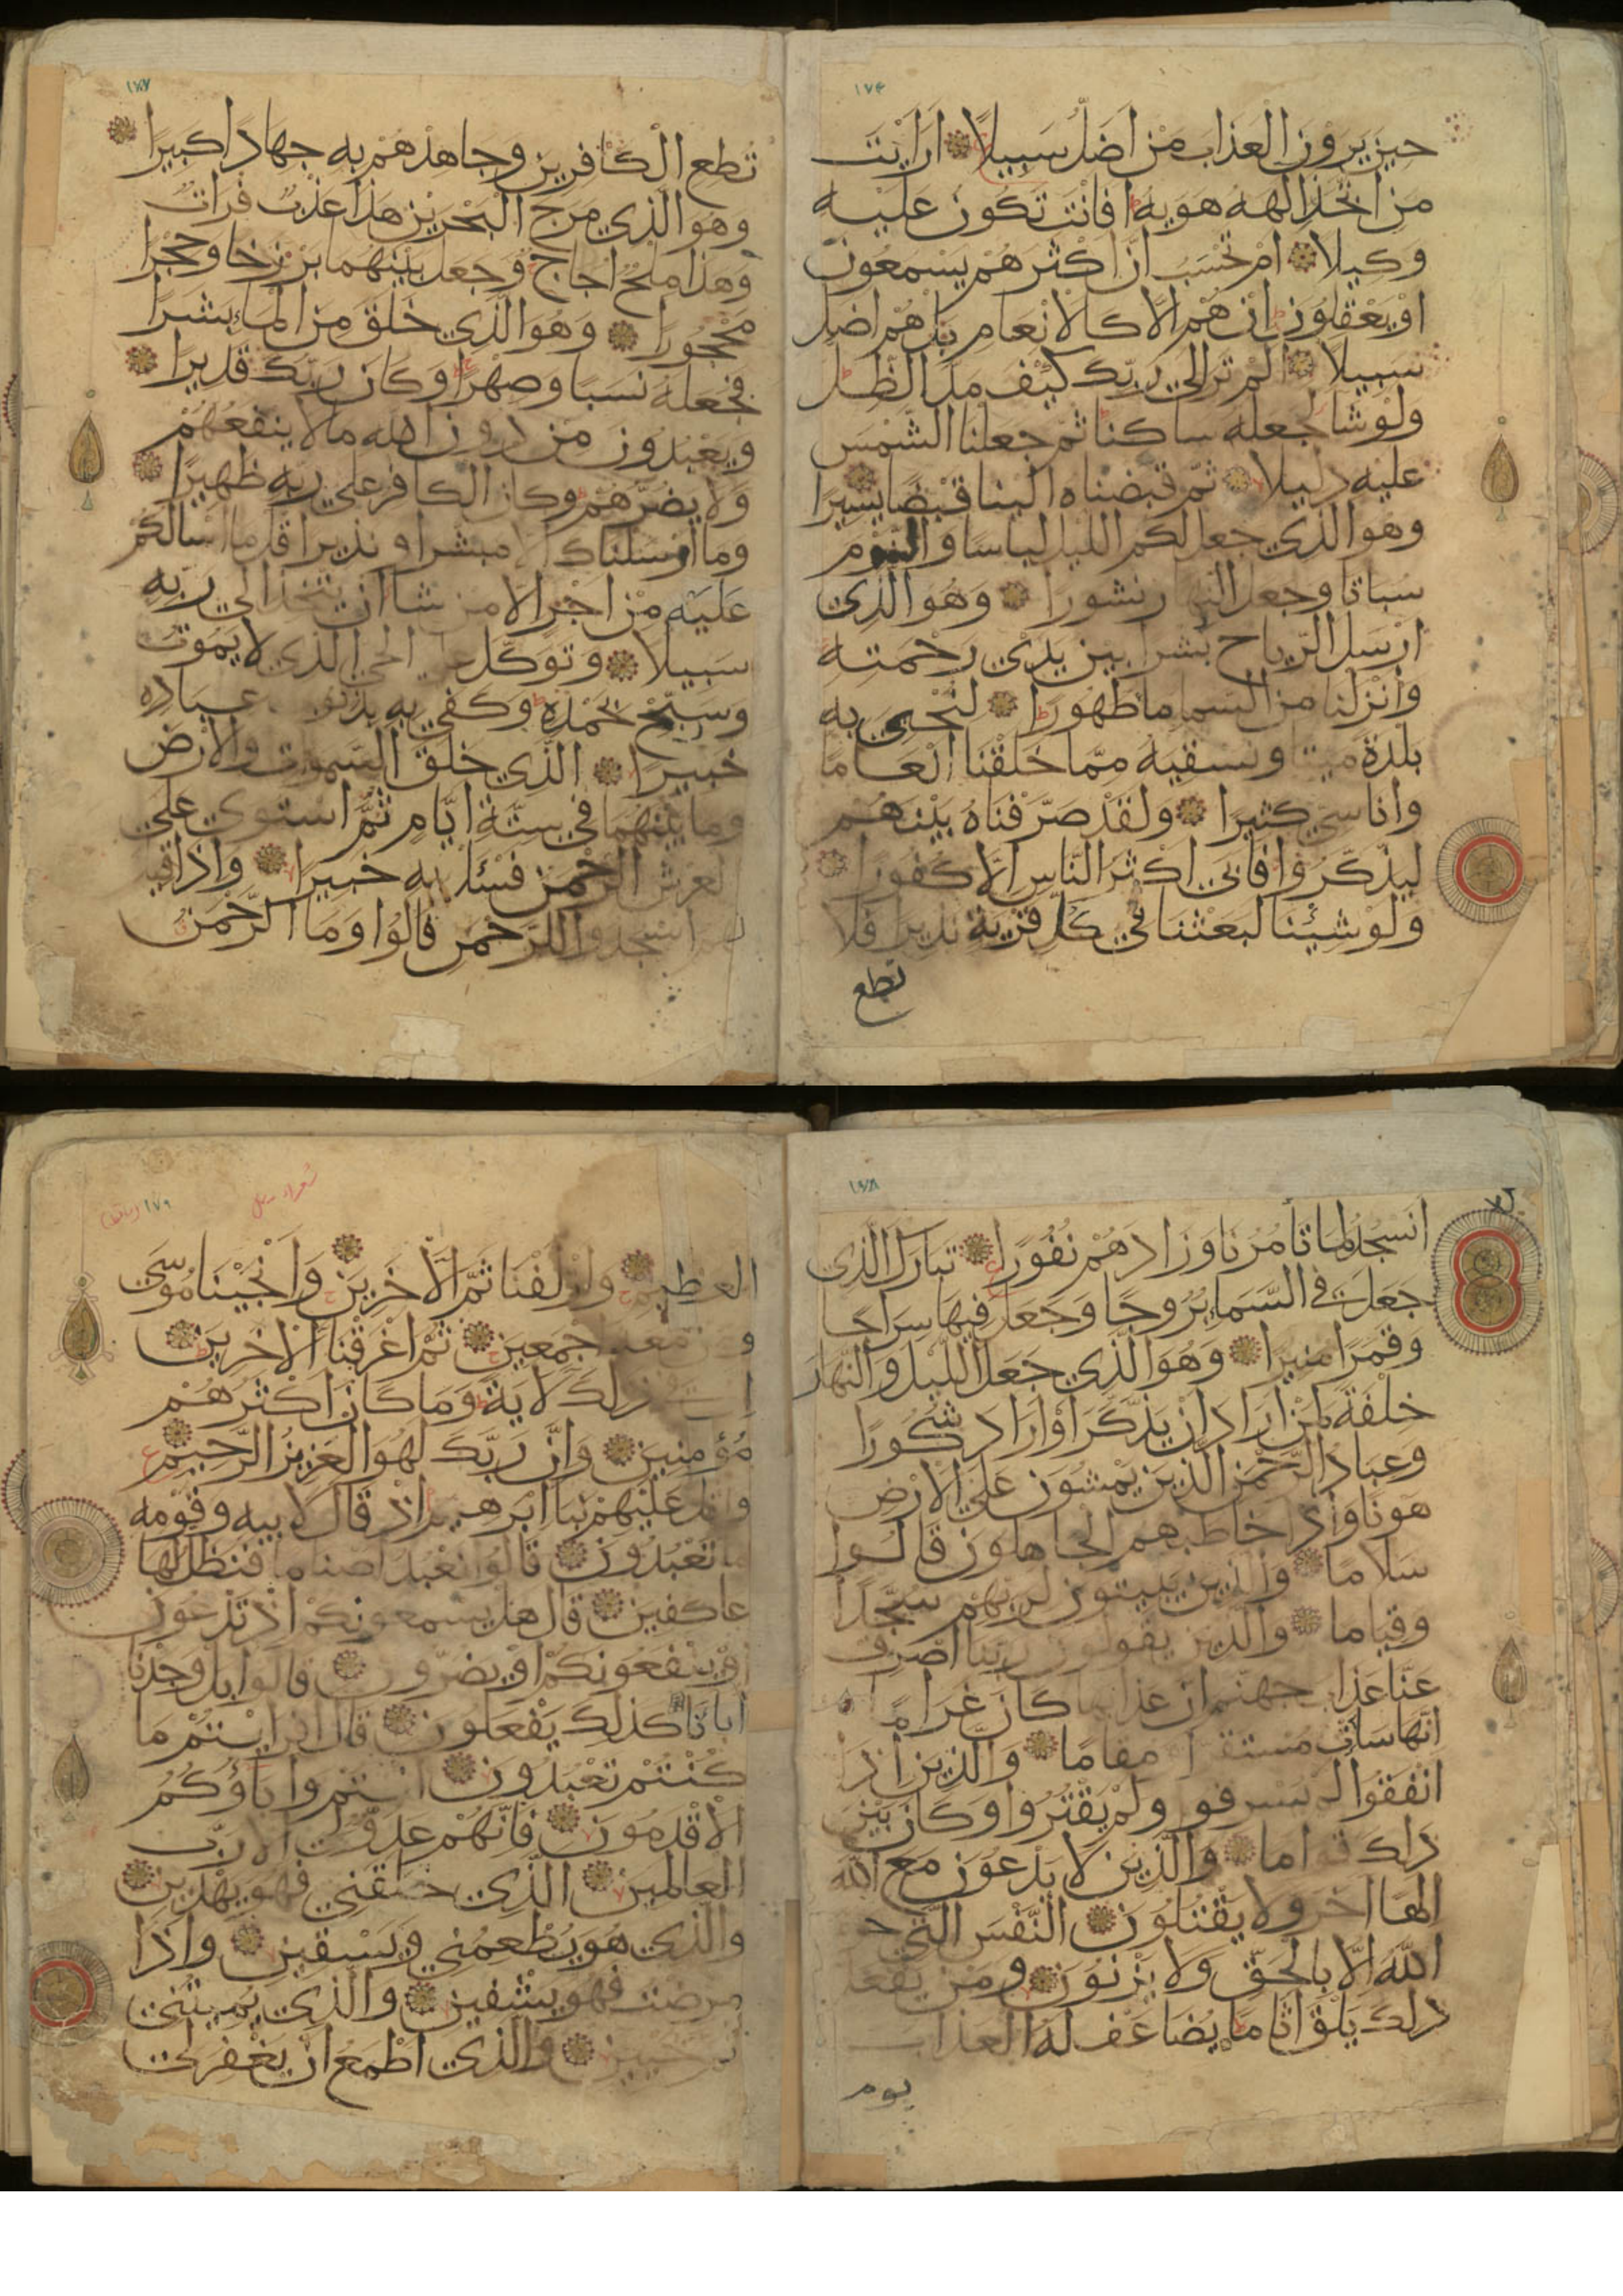 ١٧۴
حين يرون العذاب من اضل سبيلا ارايت
من اتخذ الهه هويه افانت تكون عليه
وكيلا ام تحسب ان اكثرهم يسمعون
او يعقلون ان هم الا كالانعام بل هم اضل
سبيلا الم تر الى ربك كيف مد الظل
ولو شا لجعله ساكنا ثم جعلنا الشمس
عليه دليلا ثم قبضناه الينا قبضا يسيرا
وهو الذي جعل لكم الليل لباسا والنوم
سباتا وجعل النهار نشورا وهو الذي
ارسل الرياح بشرا بين يدي رحمته
وانزلنا من السما ما طهورا لنحيي به
بلدة ميتا ونسقيه مما خلقنا انعاما
واناسي كثيرا ولقد صرفناه بينهم
ليذكروا فابى اكثر الناس الا كفورا
ولو شئنا لبعثنا في كل قرية نذيرا فلا
تطع
تطع الكافرين وجاهدهم به جهادا كبيرا
وهو الذي مرج البحرين هذا عذب فرات
وهذا ملح اجاج وجعل بينهما برزخا وحجرا
محجورا وهو الذي خلق من الماء بشرا
فجعله نسبا وصهرا وكان ربك قديرا
ويعبدون من دون الله ما لا ينفعهم
ولا يضرهم وكان الكافر على ربه ظهيرا
وما ارسلناك الا مبشرا ونذيرا قل ما اسالكم
عليه من اجر الا من شا ان يتخذ الى ربه
سبيلا وتوكل على الحي الذي لا يموت
وسبح بحمده وكفى به بذنوب عباده
خبيرا الذي خلق السموت والارض
وما بينهما في ستة ايام ثم استوى على
العرش الرحمن فسئل به خبيرا واذا قيل
لهم اسجدوا للرحمن قالوا وما الرحمن
انسجد لما تأمرنا وزادهم نفورا تبارك الذي
جعل في السماء بروجا وجعل فيها سراجا
وقمرا منيرا وهو الذي جعل الليل والنهار
خلفة لمن اراد ان يذكر او اراد شكورا
وعباد الرحمن الذين يمشون على الارض
هونا واذا خاطبهم الجاهلون قالوا
سلاما والذين يبيتون لربهم سجدا
وقياما والذين يقولون ربنا اصرف
عنا عذاب جهنم ان عذابها كان غراما
انها سات مستقرا مقاما والذين اذا
انفقوا لم يسرفوا ولم يقتروا وكان بين
ذلك قواما والذين لا يدعون مع الله
الها اخر ولا يقتلون النفس التي حرم
الله الا بالحق ولا يزنون ومن يفعل
ذلك يلق اثاما يضاعف له العذاب
يوم
١٧٩
العظيم وازلفنا ثم الاخرين وانجينا موسى
ومن معه اجمعين ثم اغرقنا الاخرين
ان في ذلك لاية وما كان اكثرهم
مؤمنين وان ربك لهو العزيز الرحيم
واتل عليهم نبا ابرهيم اذ قال لابيه وقومه
ما تعبدون قالوا نعبد اصناما فنظل لها
عاكفين قال هل يسمعونكم اذ تدعون
او ينفعونكم او يضرون قالوا بل وجدنا
اباءنا كذلك يفعلون قال افرايتم ما
كنتم تعبدون انتم واباؤكم
الاقدمون فانهم عدو لي الا رب
العالمين الذي خلقني فهو يهدين
والذي هو يطعمني ويسقين واذا
مرضت فهو يشفين والذي يميتني
ثم يحيين والذي اطمع ان يغفر لي